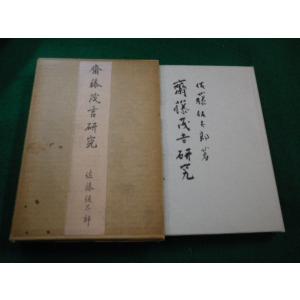 齋藤茂吉研究
佐藤佐太郎
佐藤佐太郎著
齋藤茂吉研究